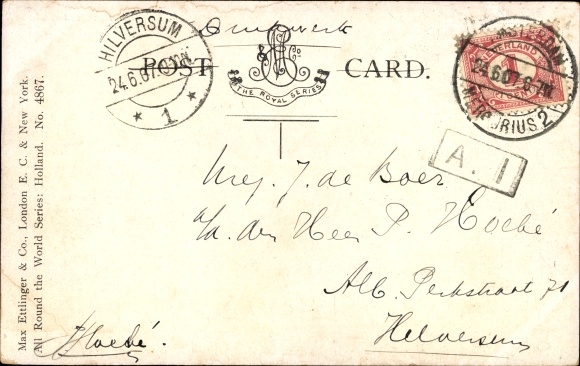 Drukwerk
HILVERSUM
24.6.07
1
POST CARD.
THE ROYAL SERIES
AMSTERDAM
NEDERLAND
24.6.07
1
2
A. 1
Mej. J. de Boer
a/a. den Heer P. Hoebé
Alb. Perkstraat 71
Hilversum
Hoebé.
Max Ettlinger & Co., London E. C. & New York.
All Round the World Series: Holland. No. 4867.